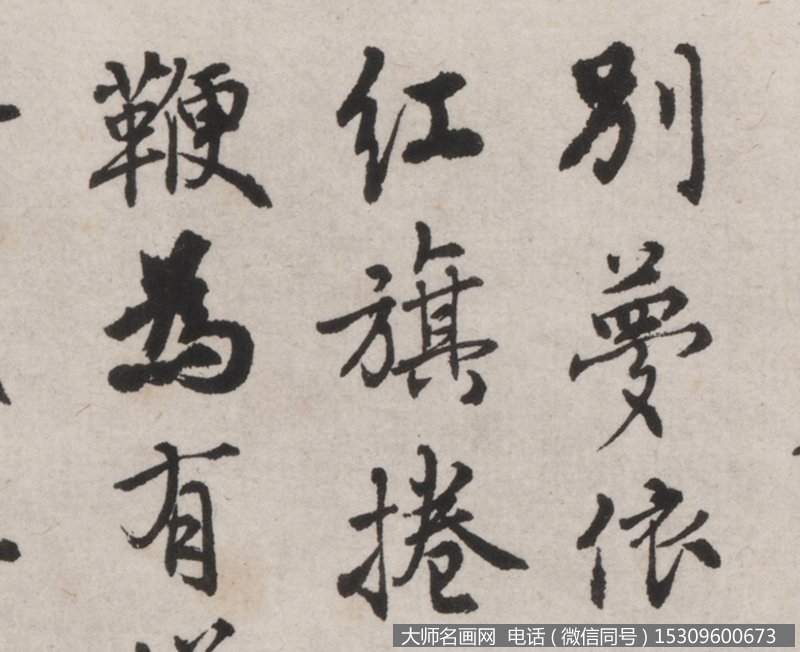 别夢依
红旗捲
鞭為有
大师名画网 电话（微信同号）15309600673